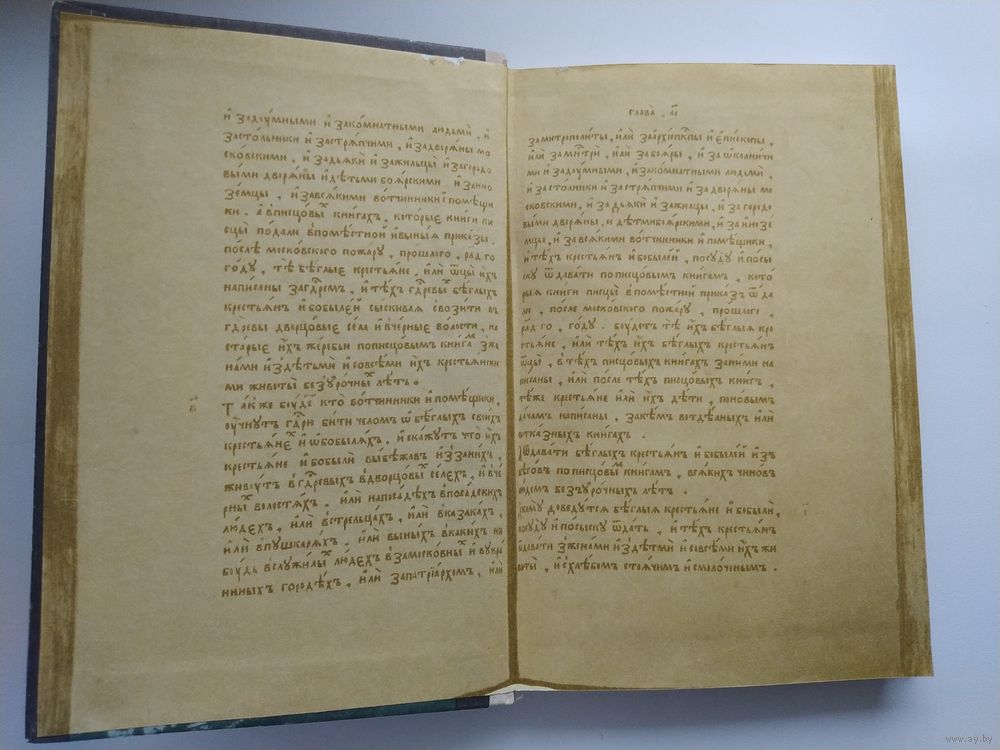 и҆ задꙋ́мными и҆ закомнатными людьмѝ , и҆
засто́льники и҆ застрѧ́пчими , и҆ задворѧ́ны мо
сковскими , и҆ задьѧки и҆ зажильцы̀ и҆ загородо
выми дворѧ́ны и҆ дѣтьми боѧ́рскими . и҆ заино
зе́мцы , и҆ завсѧ́кими во́тчинники и҆ помѣ́щи
ки . а҆ вписцовы̑ кни́гахъ , которые кни́ги пи
сцы̀ подали впомѣ́стной и҆ вы́ныѧ прика́зы .
по́слѣ московского пожа́рꙋ , про́шлаго , рлд го
го́дꙋ , тѣ бѣ́глые крестьѧ́не , и҆лѝ ѿцы̀ и҆́хъ
написаны загдремъ , и҆ тѣ́хъ гдревы̑ бѣ́глыхъ
крестьѧ́нъ и҆ бобылѐй сыскиваѧ свози́ти въ
гдревы дворцовые се́ла и҆ вче́рные во́лости , на
ста́рые и҆́хъ жеребьи пописцовымъ кни́гамъ зже
нами и҆ здѣтьмѝ и҆ совсѣ́ми и҆́хъ крестьѧ́нски
ми животы̀ без ꙋро́чны̑ лѣ́тъ .
Та́кже бꙋдетъ кто во́тчинники и҆ помѣ́щики ,
ꙋ҆чнꙋтъ гдрю би́ти челомъ ѡ҆ бѣ́глыхъ свои́хъ
крестьѧ́нехъ и҆ ѡ҆ бобылѧ́хъ , и҆ ска́жꙋтъ что и҆́хъ
крестьѧ́не и҆ бобылѝ вы́бѣжавъ и҆ззани́хъ ,
живꙋтъ вгдревыхъ в дворцовы̑ се́лехъ , и҆ вче
рны̑ волостѧ́хъ . и҆лѝ напоса́дѣхъ впоса́дскихъ
лю́дехъ , и҆лѝ встрельца́хъ , и҆лѝ вказака́хъ ,
и҆лѝ впꙋшкарѧ́хъ . и҆лѝ выныхъ вкаки́хъ ни
бꙋдь вслꙋжилы̑ лю́дехъ взамосковны̑ и҆ вꙋкра
инныхъ городѣ́хъ , и҆лѝ запатрїа́рхомъ , и҆лѝ
глава̀ . а҃і
замитрополи́ты , и҆лѝ заа҆рхїепкпы и҆ е҆пи́скопы ,
и҆лѝ замнтрѝ , и҆лѝ забоѧ́ры , и҆ заѡ҆ко́лничи
ми и҆ задꙋ́мными , и҆ закомнатными людьмѝ ,
и҆ засто́лники и҆ застрѧ́пчими и҆ задворѧ́ны мо
сковскими , и҆ задьѧки и҆ зажилцы̀ , и҆ загородо
выми дворѧ́ны , и҆ дѣтмибоѧ́рскими , и҆ заинозе́
мцы , и҆ завсѧ́кими во́тчинники и҆ помѣ́щики ,
и҆ тѣ́хъ крестьѧ́нъ и҆ бобылѐй , посꙋдꙋ̀ и҆ посы
скꙋ ѿдава́ти пописцовымъ кни́гамъ , кото
рыѧ кни́ги писцы̀ впомѣ́стной прика́зъ ѿда
ли , после московского пожа́рꙋ , прошлаго ,
рлд го , го́дꙋ . бꙋдетъ тѣ̀ и҆́хъ бѣ́глыѧ кре
стьѧне , и҆лѝ тѣ́хъ и҆́хъ бѣ́глыхъ крестьѧ́нъ
ѿцы̀ , втѣ́хъ писцовыхъ кни́гахъ зани́ми на
писаны , и҆лѝ после тѣ́хъ писцовыхъ кни́гъ ,
тѣ́же крестьѧне и҆лѝ и҆́хъ дѣ́ти , поновымъ
да́чамъ написаны , закѣ́мъ вѿдѣ́лныхъ и҆лѝ
ѿка́зныхъ кни́гахъ .
ѿдава́ти бѣ́глыхъ крестьѧ́нъ и҆ бобылѐй и҆зъ
бѣго́въ пописцовы̑мъ кни́гамъ , всѧ́кихъ чино́въ
лю́демъ безъꙋро́чныхъ лѣ́тъ .
комꙋ̀ доведꙋтсѧ бѣ́глыѧ крестьѧ́не и҆ бобылѝ ,
посꙋдꙋ̀ и҆ посыскꙋ ѿда́ть , и҆ тѣ́хъ крестьѧ́нъ
ѿдава́ти зжена́ми и҆ здѣтмѝ и҆ совсѣ́ми и҆́хъ жи
воты̀ , и҆ схлѣ́бомъ стоѧ́чимъ и҆ смоло́ченымъ .
www.ay.by